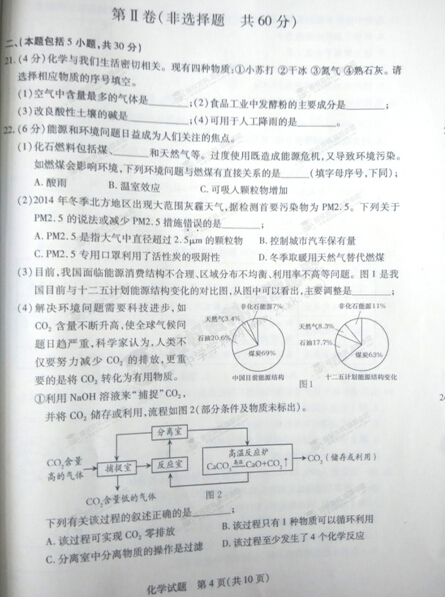 第Ⅱ卷(非选择题 共60分)
二、(本题包括5小题,共30分)
21.(4分)化学与我们生活密切相关。现有四种物质:①小苏打 ②干冰 ③氮气 ④熟石灰。请
选择相应物质的序号填空。
(1)空气中含量最多的气体是______;(2)食品工业中发酵粉的主要成分是______;
(3)改良酸性土壤的碱是______;(4)可用于人工降雨的是______。
22.(6分)能源和环境问题日益成为人们关注的焦点。
(1)化石燃料包括煤、______和天然气等。过度使用既造成能源危机,又导致环境污染。
如燃煤会影响环境,下列环境问题与燃煤有直接关系的是______(填字母序号,下同);
A.酸雨 B.温室效应 C.可吸入颗粒物增加
(2)2014年冬季北方地区出现大范围灰霾天气,据检测首要污染物为PM2.5。下列关于
PM2.5的说法或减少PM2.5措施错误的是______;
A.PM2.5是指大气中直径超过2.5μm的颗粒物 B.控制城市汽车保有量
C.PM2.5专用口罩利用了活性炭的吸附性 D.冬季取暖用天然气替代燃煤
(3)目前,我国面临能源消费结构不合理、区域分布不均衡、利用率不高等问题。图1是我
国目前与十二五计划能源结构变化的对比图,从图中可以看出,主要调整是______;
(4)解决环境问题需要科技进步,如
CO₂含量不断升高,使全球气候问
题日趋严重,科学家认为,人类不
仅要努力减少CO₂的排放,更重
要的是将CO₂转化为有用物质。
非化石能源7%
天然气3.4%
石油20.6%
煤炭69%
中国目前能源结构
非化石能源11%
天然气8.3%
石油17.7%
煤炭63%
十二五计划能源结构变化
图1
①利用NaOH溶液来“捕捉”CO₂,
并将CO₂储存或利用,流程如图2(部分条件及物质未标出)。
分离室
CO₂含量
高的气体
捕捉室
反应室
高温反应炉
CaCO₃ 高温 CaO+CO₂↑
CO₂(储存或利用)
CO₂含量低的气体
图2
下列有关该过程的叙述正确的是______;
A.该过程可实现CO₂零排放 B.该过程只有1种物质可以循环利用
C.分离室中分离物质的操作是过滤 D.该过程至少发生了4个化学反应
化学试题 第4页(共10页)